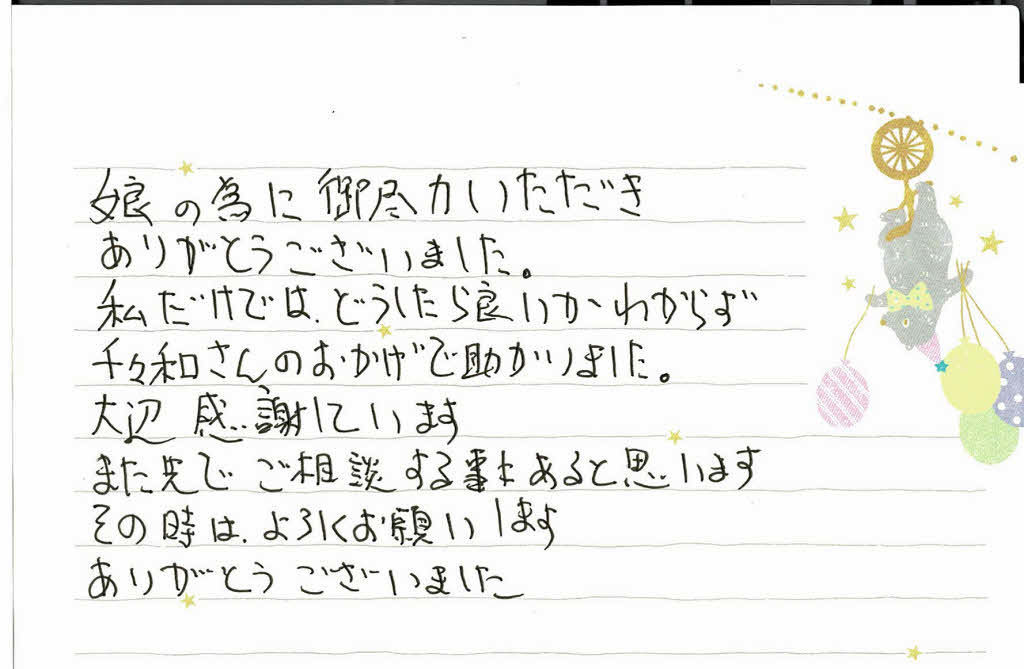 娘の為に御尽力いただき
ありがとうございました。
私だけでは、どうしたら良いかわからず
千々和さんのおかげで助かりました。
大辺感謝しています
また先でご相談する事もあると思います
その時は、よろしくお願いします
ありがとうございました